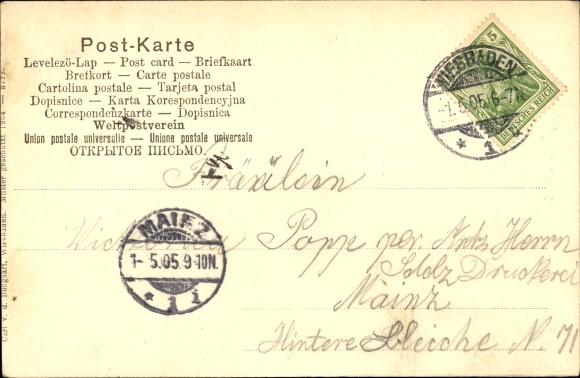 Post-Karte
Levelezö-Lap — Post card — Briefkaart
Brefkort — Carte postale
Cartolina postale — Tarjeta postal
Dopisnice — Karta Korespondencyjna
Correspondenzkarte — Dopisnica
Weltpostverein
Union postale universelle — Unione postale universale
ОТКРЫТОЕ ПИСЬМО.
5
DEUTSCHES REICH
WIESBADEN
1.5.05.6-7N.
* 1
Fräulein
Poppe per Herrn
Druckerei
Mainz
Hintere Bleiche N. 71
MAINZ
1-5.05.9-10N.
* 1 i
Carl v. d. Boogaart, Wiesbaden. Muster geschützt 1904